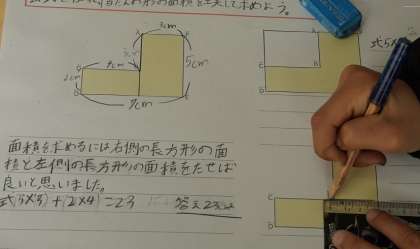 形の面積を工夫して求めよう。
3cm
A
3cm
4cm
5cm
2cm
7cm
面積を求めるには右側の長方形の面
積と左側の長方形の面積をたせば
良いと思いました。
式(5×3)+(2×4)=23
答え23
式5×